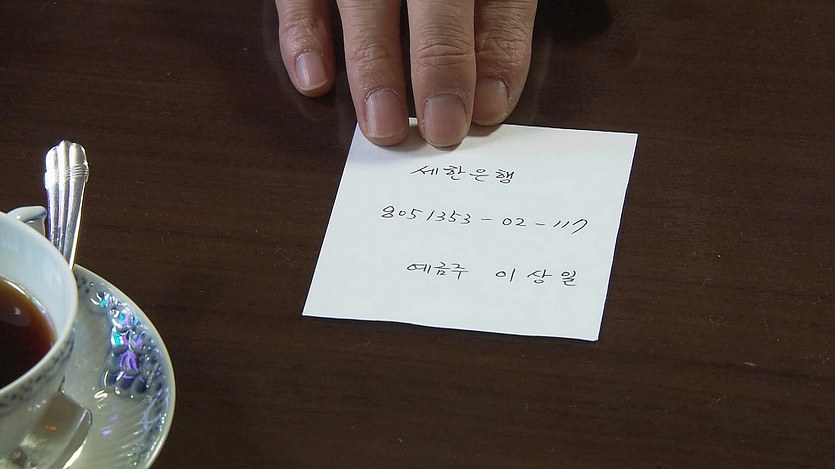 세한은행
8051353-02-117
예금주 이상일